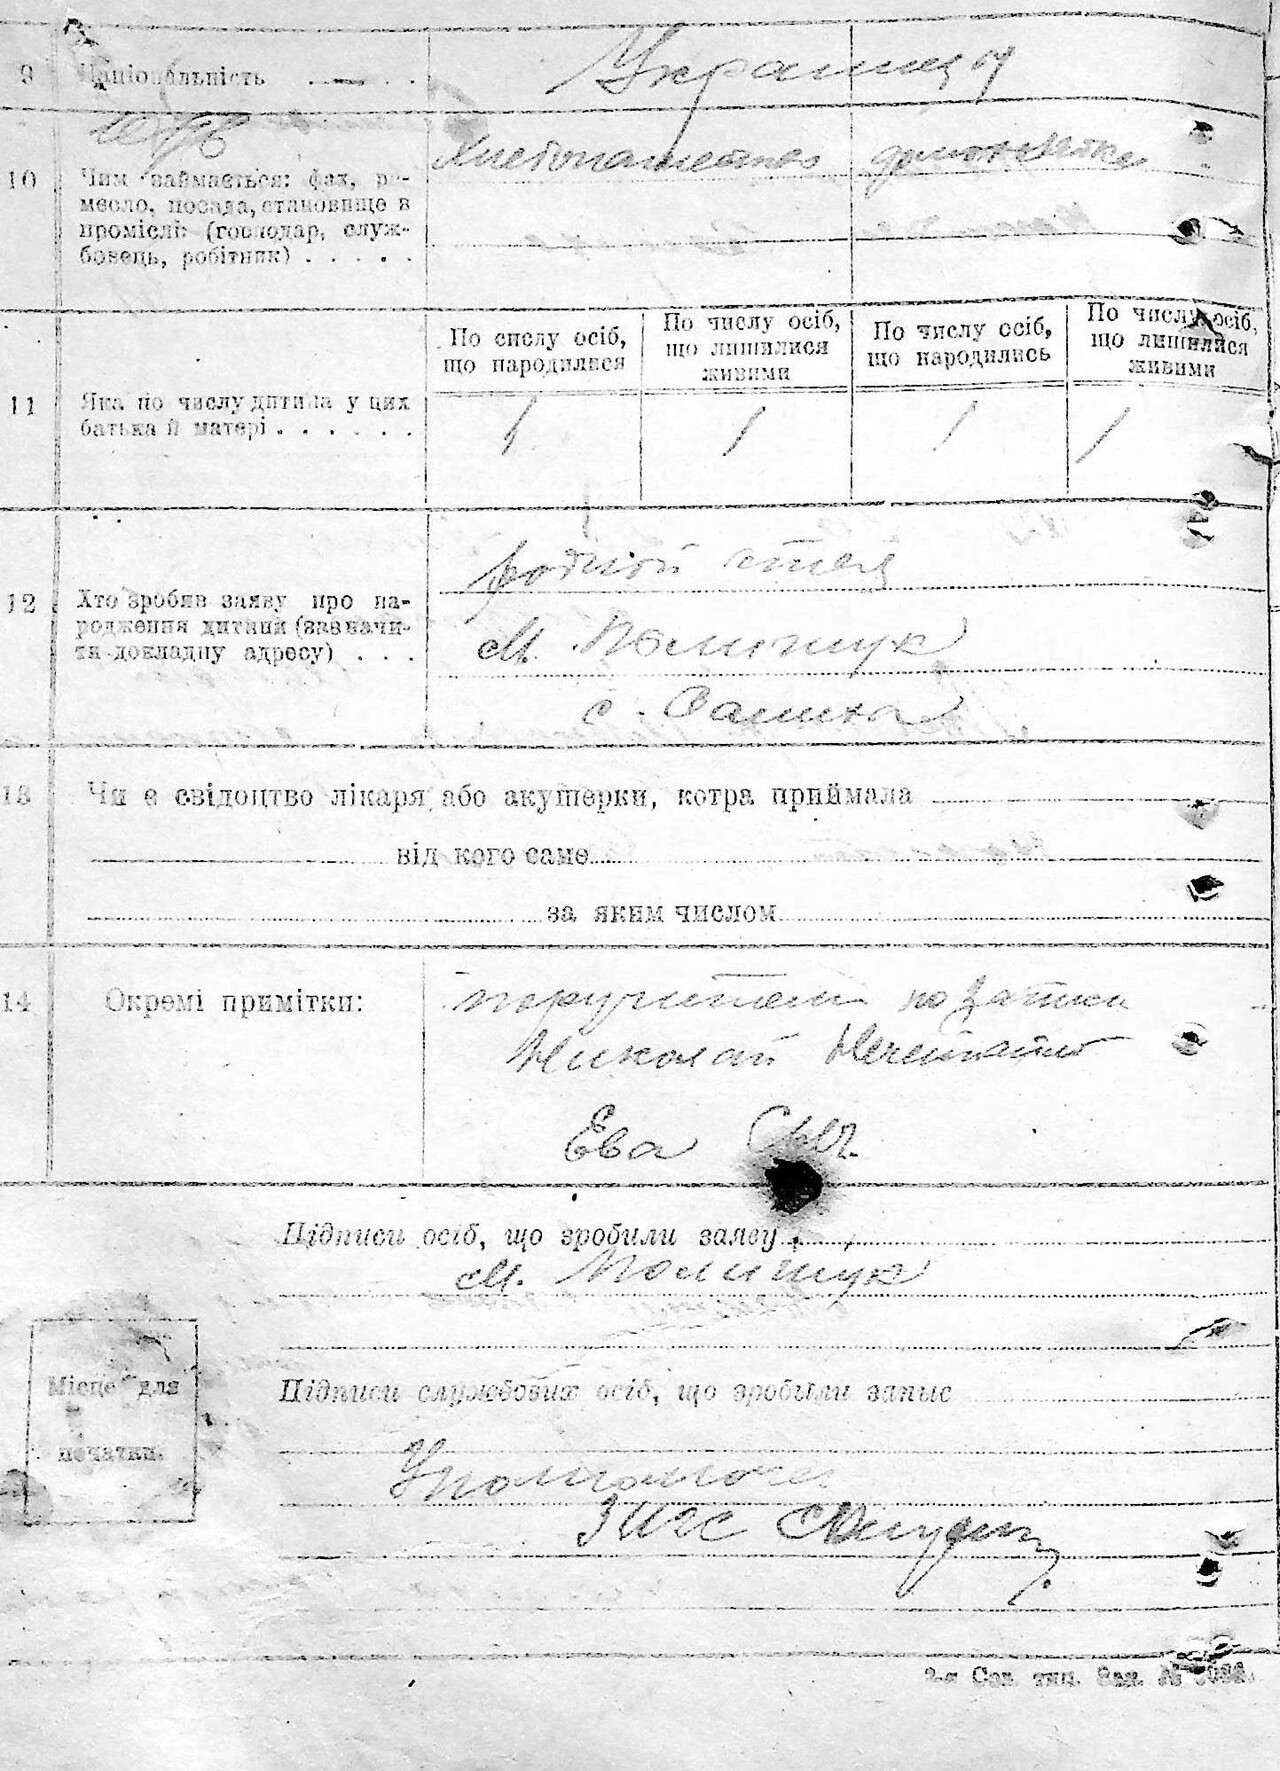 9 Національність
Украинц
10 Чим займається: фах, ре-
месло, посада, становище в
промислі: (господар, служ-
бовець, робітник)
Хлебопашество
11 Яка по числу дитина у цих
батька й матері
По числу осіб,
що народилися
По числу осіб,
що лишилися
живими
По числу осіб,
що народились
По числу осіб,
що лишилися
живими
1 1 1 1
12 Хто зробив заяву про на-
родження дитини (зазначи-
ти докладну адресу)
родной отец
М. Полищук
с.
13 Чи є свідоцтво лікаря або акушерки, котра приймала
від кого саме
за яким числом
14 Окремі примітки:
поручители по записи
Николай
Ева
Підписи осіб, що зробили заяву
М. Полищук
Місце для
печатки.
Підписи службових осіб, що зробили запис
ЗАГС
2-я Сов. тип. Зак. №